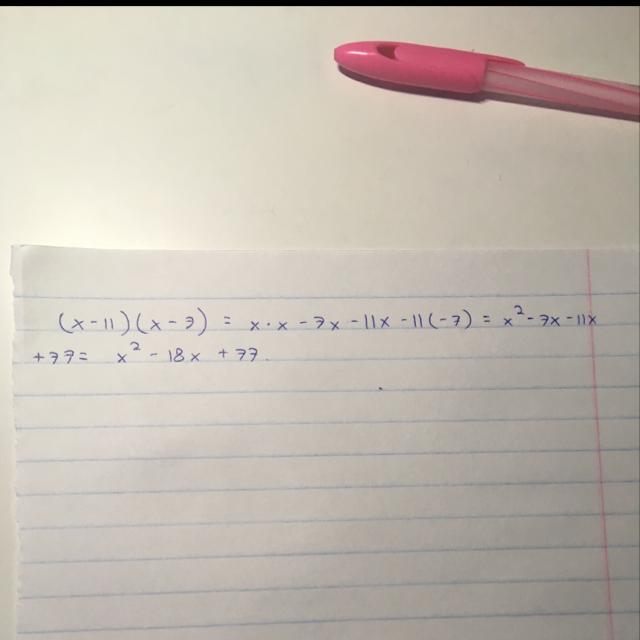 (x-11)(x-7) = x·x -7x -11x -11(-7) = x²-7x-11x
+77= x² -18x +77.